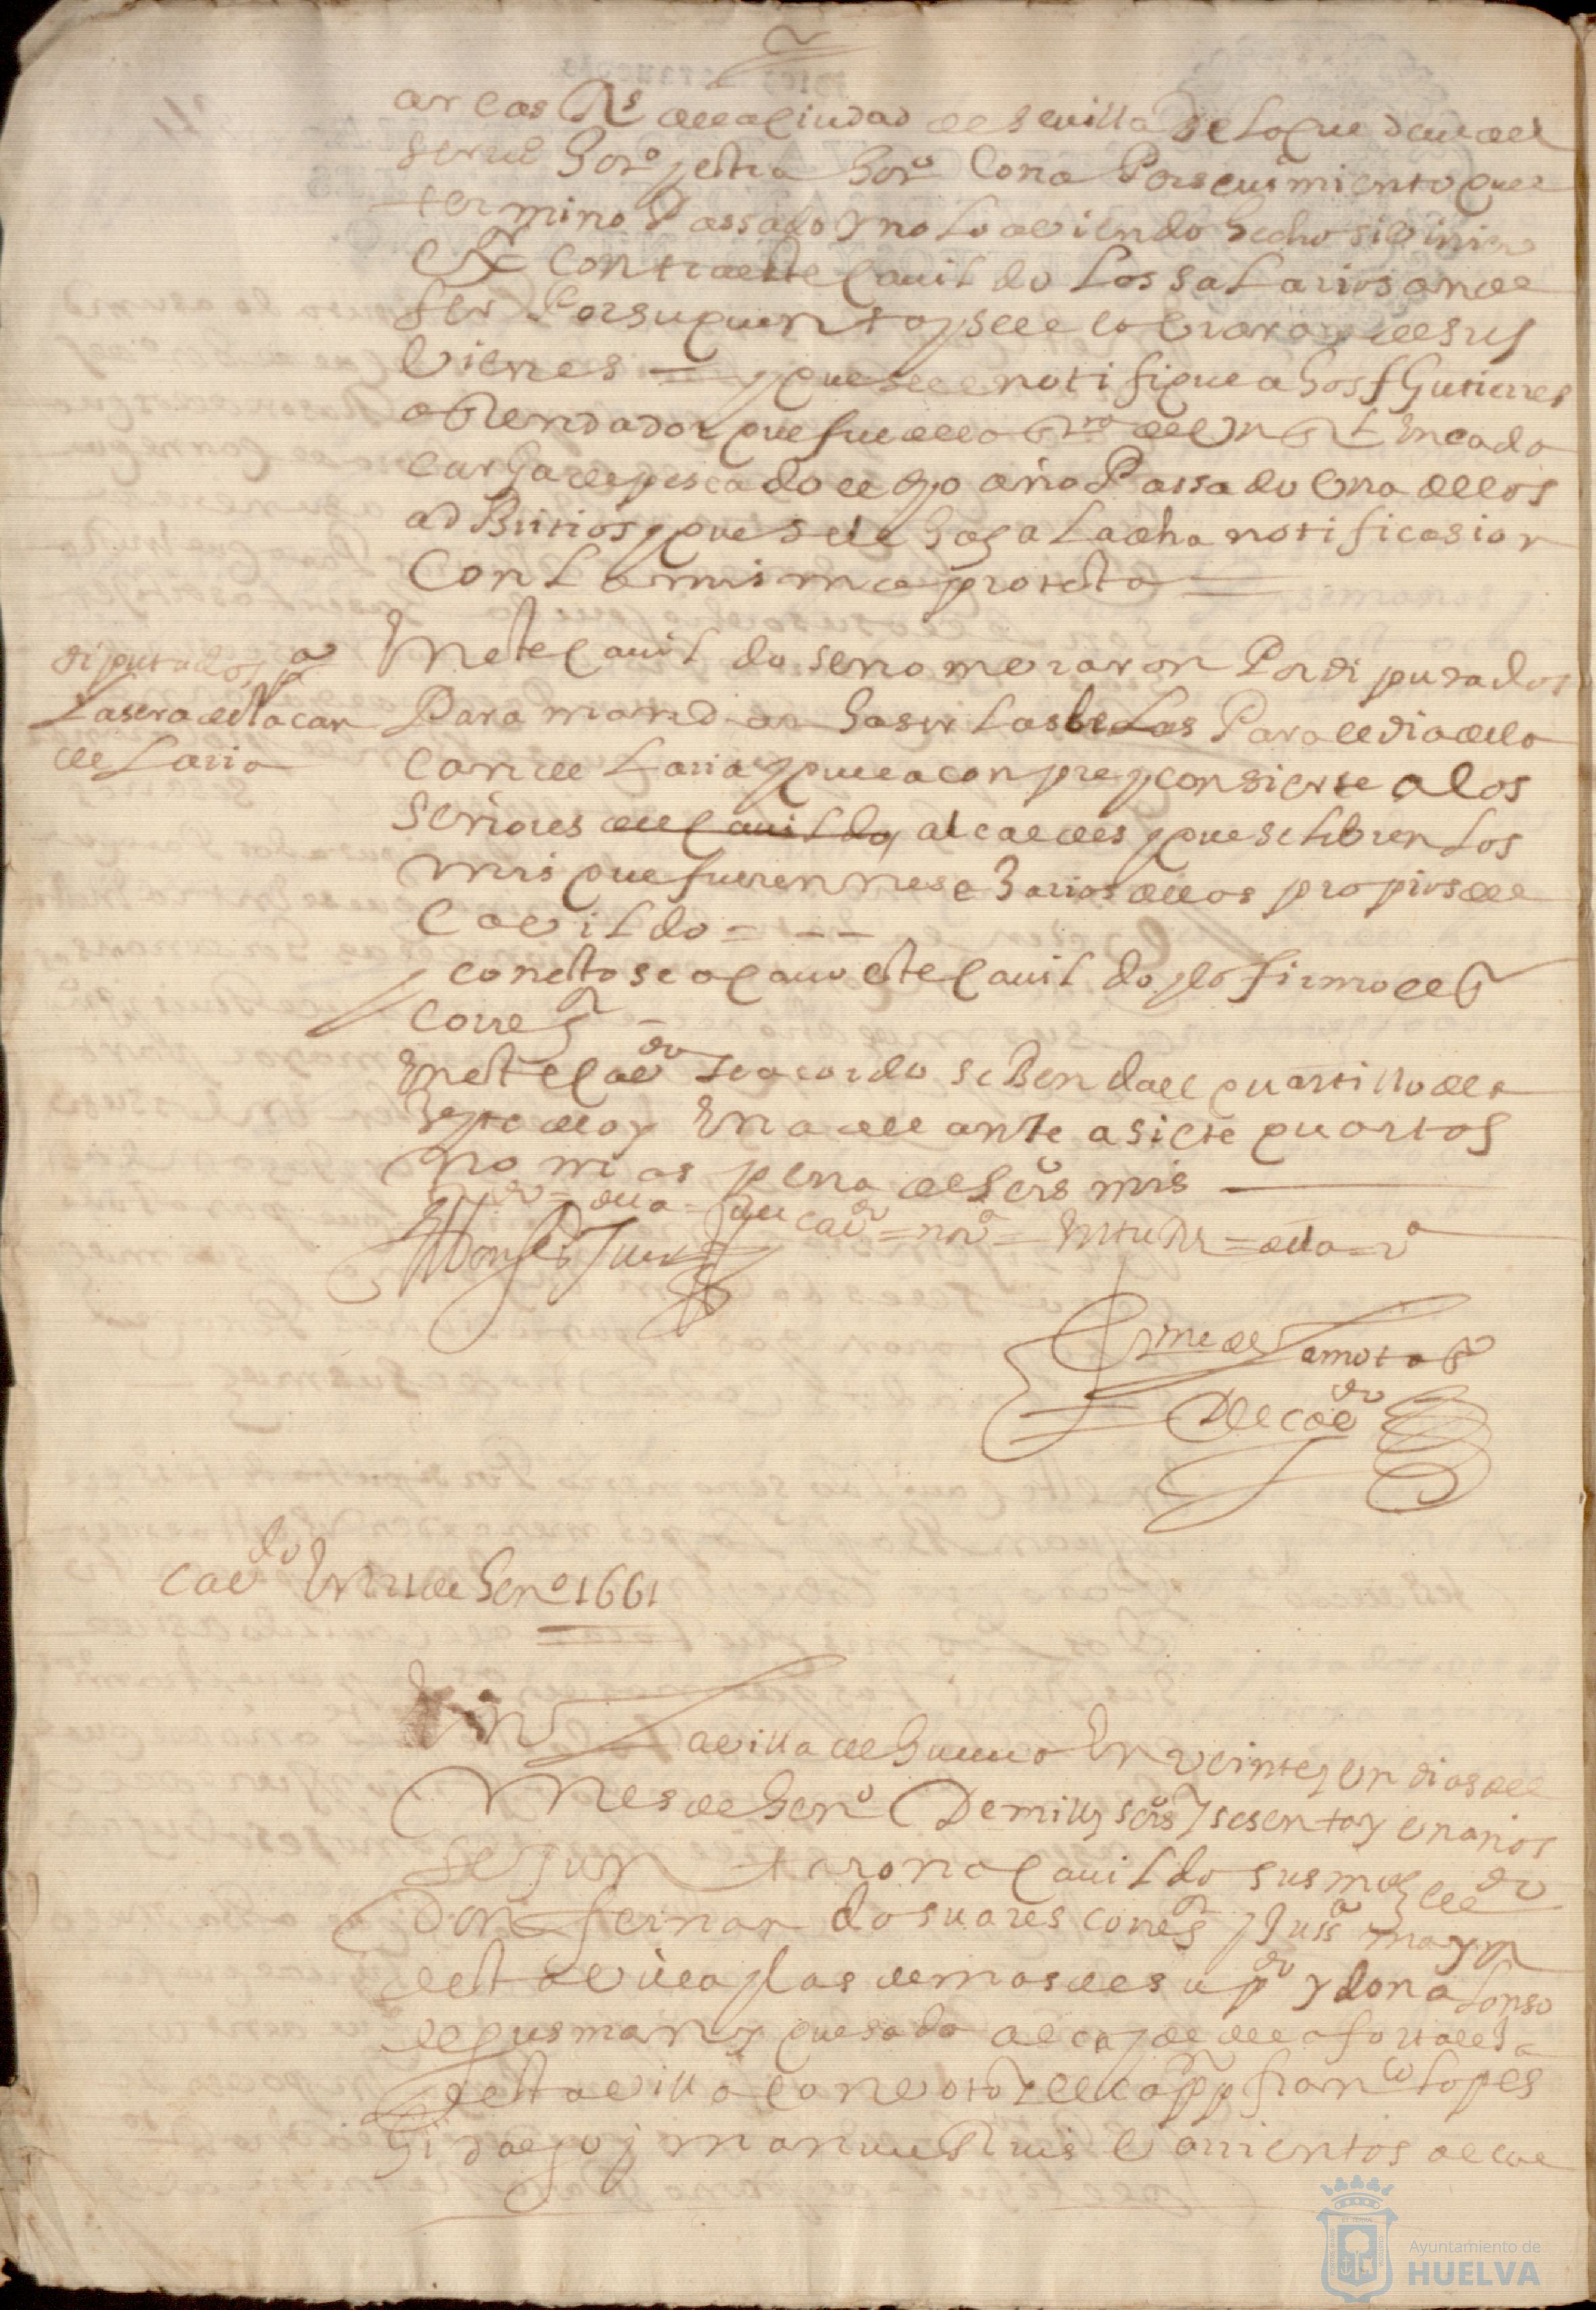 arcas Rs de la ciudad de sevilla de lo que deve del
servio hordo y estrahordo con aperseuimiento que el
termino Passado y no lo aviendo hecho si viniere
contra este cauildo los salarios an de
ser Por su quenta y se le cobraran de sus
vienes = y que se le notifique a Hosf Gutierres
arrendador que fue de la de un Rl En cada
carga de pescado el año Passado Una de los
adbitrios y que se le haga la dha notificasion
Con la misma protesta =
diputados pa
La sera de la can
delaria
En este cauildo se nombraron Por diputados
Para mandar haser las belas Para el dia de la
candelaria y que a conpre y consierte a los
señores del cauildo, alcaldes y que se libren los
mrs que fueren nesesarios de los propios del
cavildo = - -
y con esto se acauo este cauildo y lo firmo el sr
Corregr -
En este cavdo se acordo se Benda el quartillo de
de oy En adelante a siete quartos
no mas pena de seis mrs
Alonso
de la mota
De cavdo
Cavdo En 21 de Heno 1661
En La villa de Huelua En veinte y un dias del
Mes de Heno De mill y seiss y sesenta y un años
se juntaron a cauildo sus mds el ldo
Don fernando suares corregr y Jussa mayor
desta villa y las demas de su pdo y don alonso
de gusman y quesada alcayde de la fortalesa
desta villa con voto y el capp franco lopes
hidalgo y manuel Ruis barrientos alcal
Ayuntamiento de
HUELVA